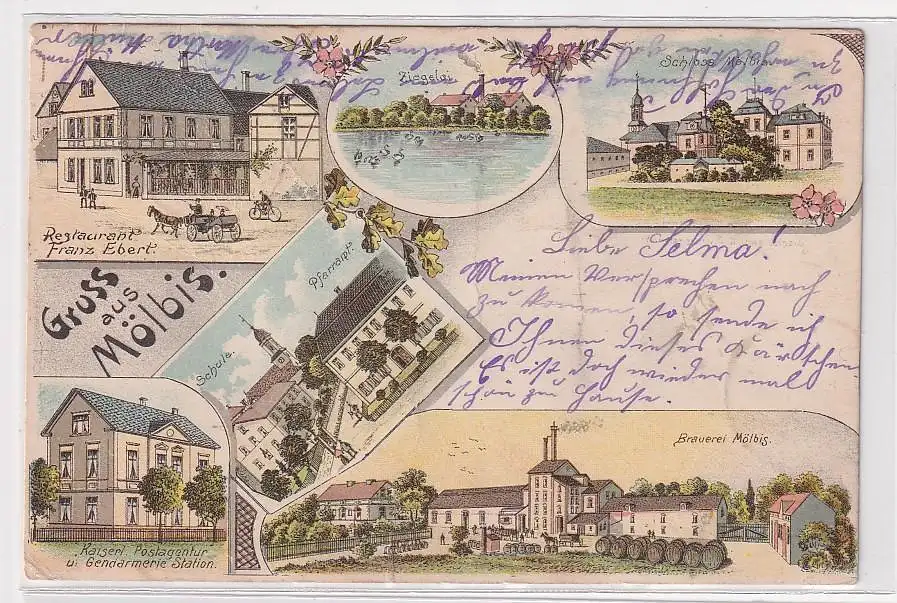 Restaurant
Franz Ebert.
Ziegelei
Schloss Mölbis
Gruss
aus
Mölbis.
Schule.
Pfarramt.
Liebe Selma!
Meinen Versprechen nach
zu kommen, so sende ich
Ihnen dieses Kärtchen.
Es ist doch wieder mal
schön zu Hause.
Kaiserl. Postagentur
u. Gendarmerie Station.
Brauerei Mölbis.